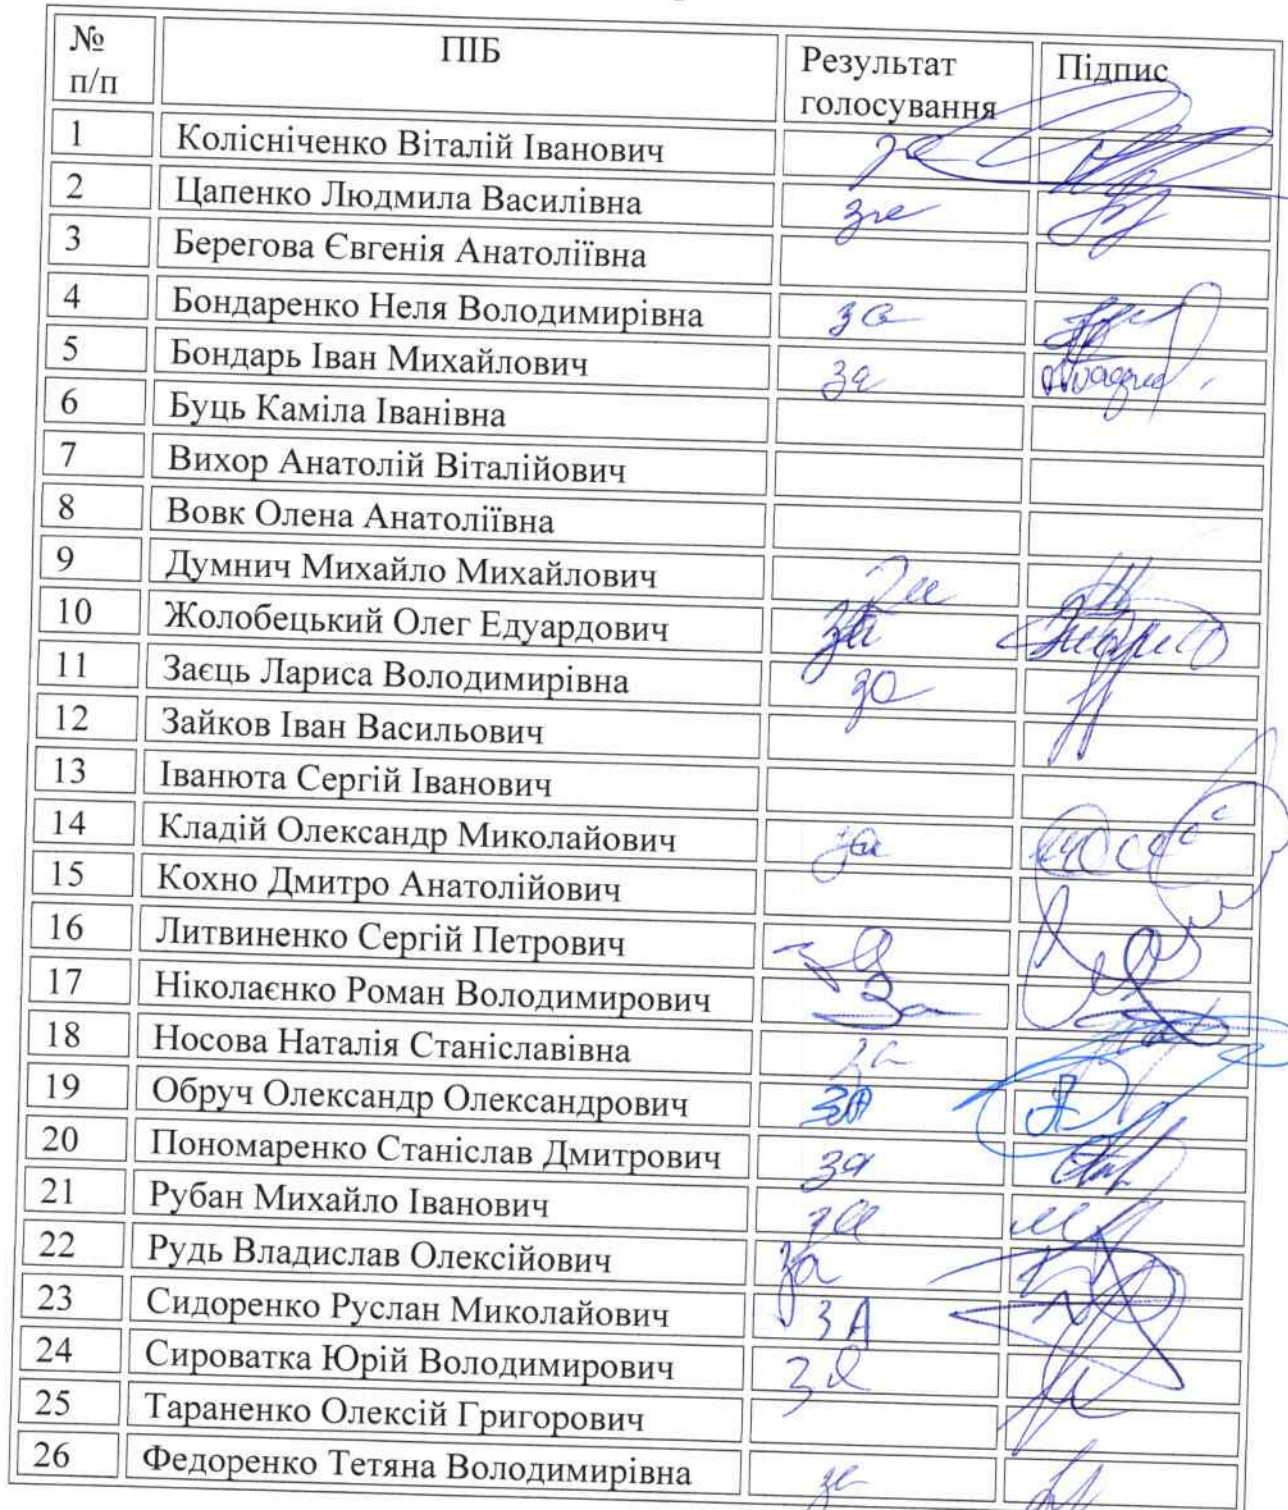 № п/п ПІБ Результат голосування Підпис
1 Колісніченко Віталій Іванович за
2 Цапенко Людмила Василівна за
3 Берегова Євгенія Анатоліївна
4 Бондаренко Неля Володимирівна за
5 Бондарь Іван Михайлович за
6 Буць Каміла Іванівна
7 Вихор Анатолій Віталійович
8 Вовк Олена Анатоліївна
9 Думнич Михайло Михайлович за
10 Жолобецький Олег Едуардович за
11 Заєць Лариса Володимирівна за
12 Зайков Іван Васильович
13 Іванюта Сергій Іванович
14 Кладій Олександр Миколайович за
15 Кохно Дмитро Анатолійович
16 Литвиненко Сергій Петрович за
17 Ніколаєнко Роман Володимирович За
18 Носова Наталія Станіславівна за
19 Обруч Олександр Олександрович ЗА
20 Пономаренко Станіслав Дмитрович за
21 Рубан Михайло Іванович за
22 Рудь Владислав Олексійович за
23 Сидоренко Руслан Миколайович ЗА
24 Сироватка Юрій Володимирович за
25 Тараненко Олексій Григорович
26 Федоренко Тетяна Володимирівна за